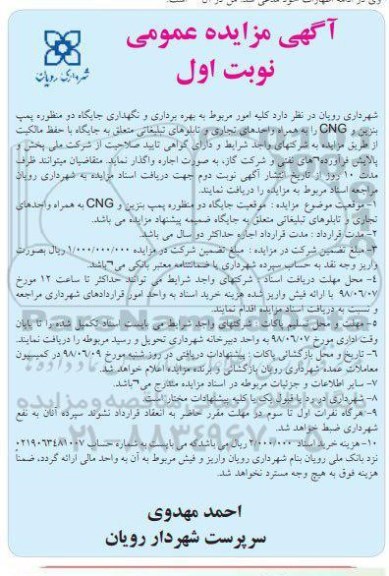 آگهی مزایده عمومی
نوبت اول
شهرداری رویان
شهرداری رویان در نظر دارد کلیه امور مربوط به بهره برداری و نگهداری جایگاه دو منظوره پمپ
بنزین و CNG را به همراه واحدهای تجاری و تابلوهای تبلیغاتی متعلق به جایگاه با حفظ مالکیت
از طریق مزایده به شرکتهای واجد شرایط و دارای گواهی تایید صلاحیت از شرکت ملی پخش و
پالایش فرآورده های نفتی و شرکت گاز، به صورت اجاره واگذار نماید. متقاضیان میتوانند ظرف
مدت ۱۰ روز از تاریخ انتشار آگهی نوبت دوم جهت دریافت اسناد مزایده به شهرداری رویان
مراجعه و اسناد مربوط به مزایده را دریافت نمایند.
۱- موقعیت موضوع مزایده : موقعیت جایگاه دو منظوره پمپ بنزین و CNG به همراه واحدهای
تجاری و تابلوهای تبلیغاتی متعلق به جایگاه ضمیمه پیشنهاد مزایده می باشد.
۲- مدت قرارداد : مدت قرارداد اجاره حداکثر دو سال می باشد.
۳- مبلغ تضمین شرکت در مزایده : مبلغ تضمین شرکت در مزایده ۱/۰۰۰/۰۰۰/۰۰۰ ریال بصورت
واریز وجه نقد به حساب سپرده شهرداری یا ضمانتنامه معتبر بانکی می باشد.
۴- محل مهلت دریافت اسناد : شرکتهای واجد شرایط می توانند حداکثر تا ساعت ۱۲ مورخ
۹۸/۰۶/۰۷ با ارائه فیش واریز شده هزینه خرید اسناد به واحد امور قراردادهای شهرداری مراجعه
و نسبت به دریافت اسناد مزایده اقدام نمایند.
۵- مهلت و محل تسلیم پاکات : شرکتهای واجد شرایط می بایست اسناد تکمیل شده را تا پایان
وقت اداری مورخ ۹۸/۰۶/۰۷ به واحد دبیرخانه شهرداری تحویل و رسید مربوطه را دریافت نمایند.
۶- تاریخ و محل بازگشائی پاکات : پیشنهادات دریافتی در روز شنبه مورخ ۹۸/۰۶/۰۹ در کمیسیون
معاملات عمده شهرداری رویان بازگشائی و برنده مزایده اعلام خواهد شد.
۷- سایر اطلاعات و جزئیات مربوطه در اسناد مزایده مندرج می باشد.
۸- شهرداری در رد یا قبول یک یا کلیه پیشنهادات مختار است.
۹- هرگاه نفرات اول تا سوم در مهلت مقرر حاضر به انعقاد قرارداد نشوند سپرده آنان به نفع
شهرداری ضبط خواهد شد.
۱۰- هزینه خرید اسناد ۲/۰۰۰/۰۰۰ ریال می باشد که می بایست به شماره حساب ۰۲۱۹۰۶۳۴۸۱۰۰۷
نزد بانک ملی رویان بنام شهرداری رویان واریز و فیش مربوط به آن به واحد مالی ارائه گردد، ضمناً
هزینه فوق به هیچ وجه مسترد نخواهد شد.
احمد مهدوی
سرپرست شهردار رویان